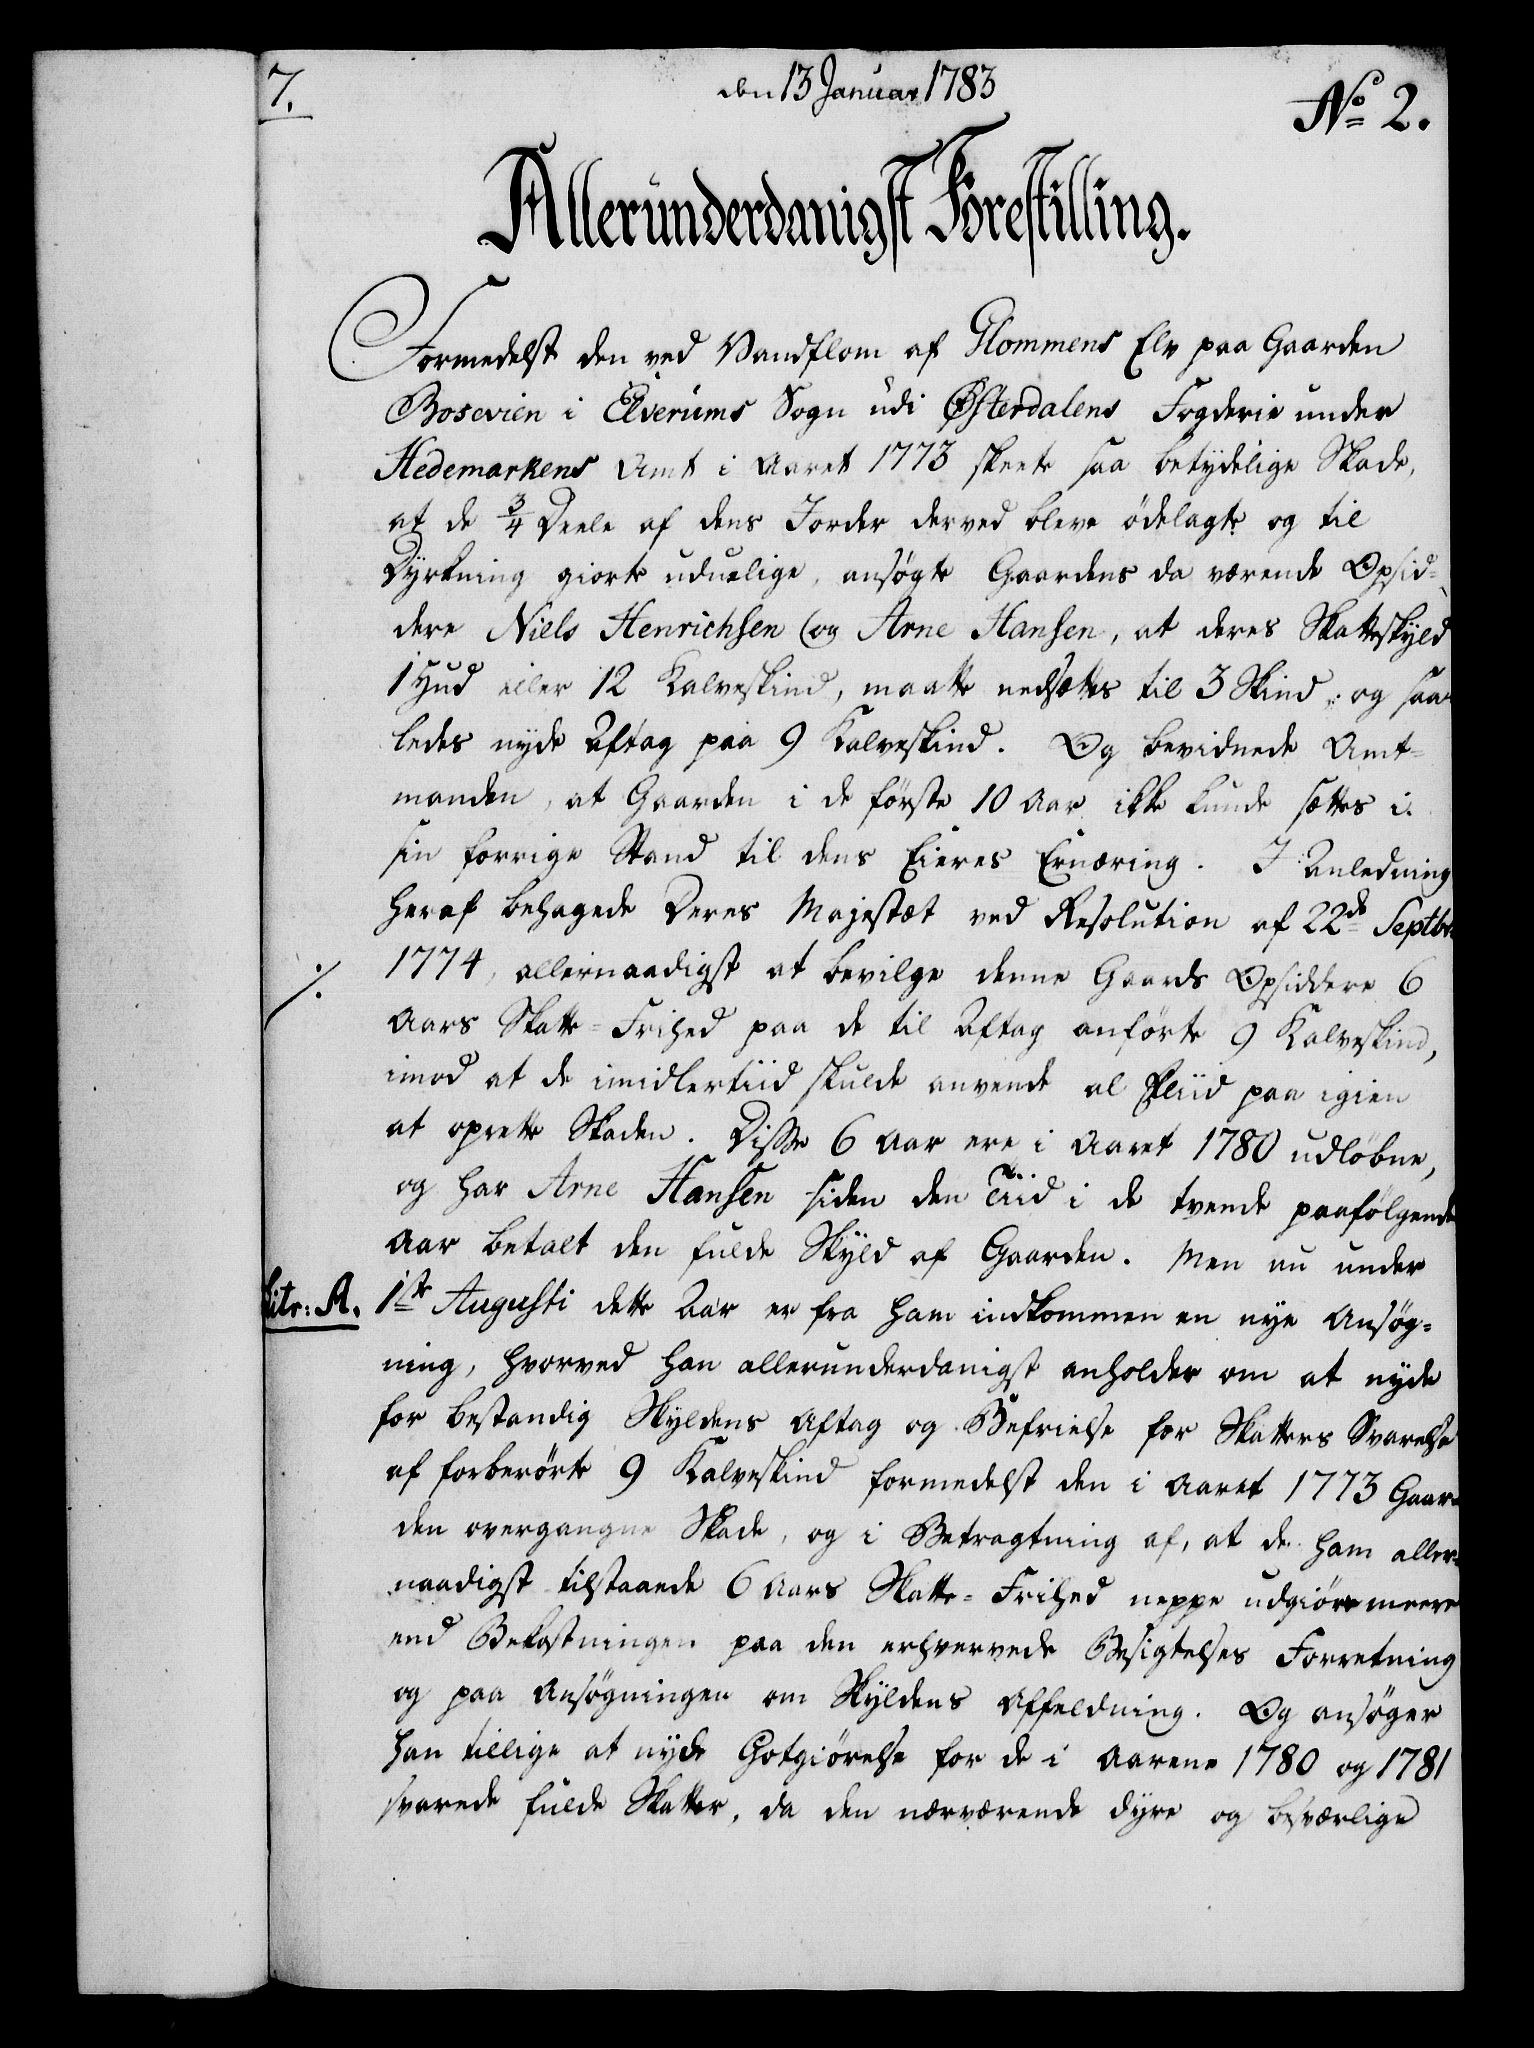 7.
den 13 Januar 1783
No 2.
Allerunderdanigst Forestilling.
Formedelst den ved Vandflom af Glommens Elv paa Gaarden
Bosevien i Elverums Sogn udi Østerdalens Fogderie under
Hedemarkens Amt i Aaret 1773 skeete saa betydelige Skade,
at de 3/4 Deele af dens Jorder derved bleve ödelagte og til
Dyrkning giorte uduelige, ansøgte Gaardens da værende Opsid=
dere Niels Henrichsen og Arne Hansen, at deres Skatteskyld
1 Hud eller 12 Kalveskind, maatte nedsættes til 3 Skind, og saa=
ledes nyde Aftag paa 9 Kalveskind. Og bevidnede Amt=
manden, at Gaarden i de første 10 Aar ikke kunde sættes i
sin forrige Stand til dens Eieres Ernæring. I Anledning
heraf behagede Deres Majestæt ved Resolution af 22de Septbr.
1774, allernaadigst at bevilge denne Gaards Opsiddere 6
Aars Skatte=Frihed paa de til Aftag anførte 9 Kalveskind,
imod at de imidlertiid skulde anvende al Fliid paa igien
at oprette Skaden. Disse 6 Aar ere i Aaret 1780 udløbne,
og har Arne Hansen siden den Tiid i de tvende paafølgende
Aar betalt den fulde Skyld af Gaarden. Men nu under
Litr: A.
1ste Augusti dette Aar er fra ham indkommen en nye Ansøg=
ning, hvorved han allerunderdanigst anholder om at nyde
for bestandig Skyldens Aftag og Befrielse for Skatters Svarelse
af forberørte 9 Kalveskind formedelst den i Aaret 1773 Gaar=
den overgangne Skade, og i Betragtning af, at de ham aller=
naadigst tilstaaede 6 Aars Skatte=Frihed neppe udgiöre meere
end Bekostningen paa den erhvervede Besigtelses Forretning
og paa Ansøgningen om Skyldens Affeldning. Og ansøger
han tillige at nyde Gotgiörelse for de i Aarene 1780 og 1781
svarede fulde Skatter, da den nærværende dyre og besværlige